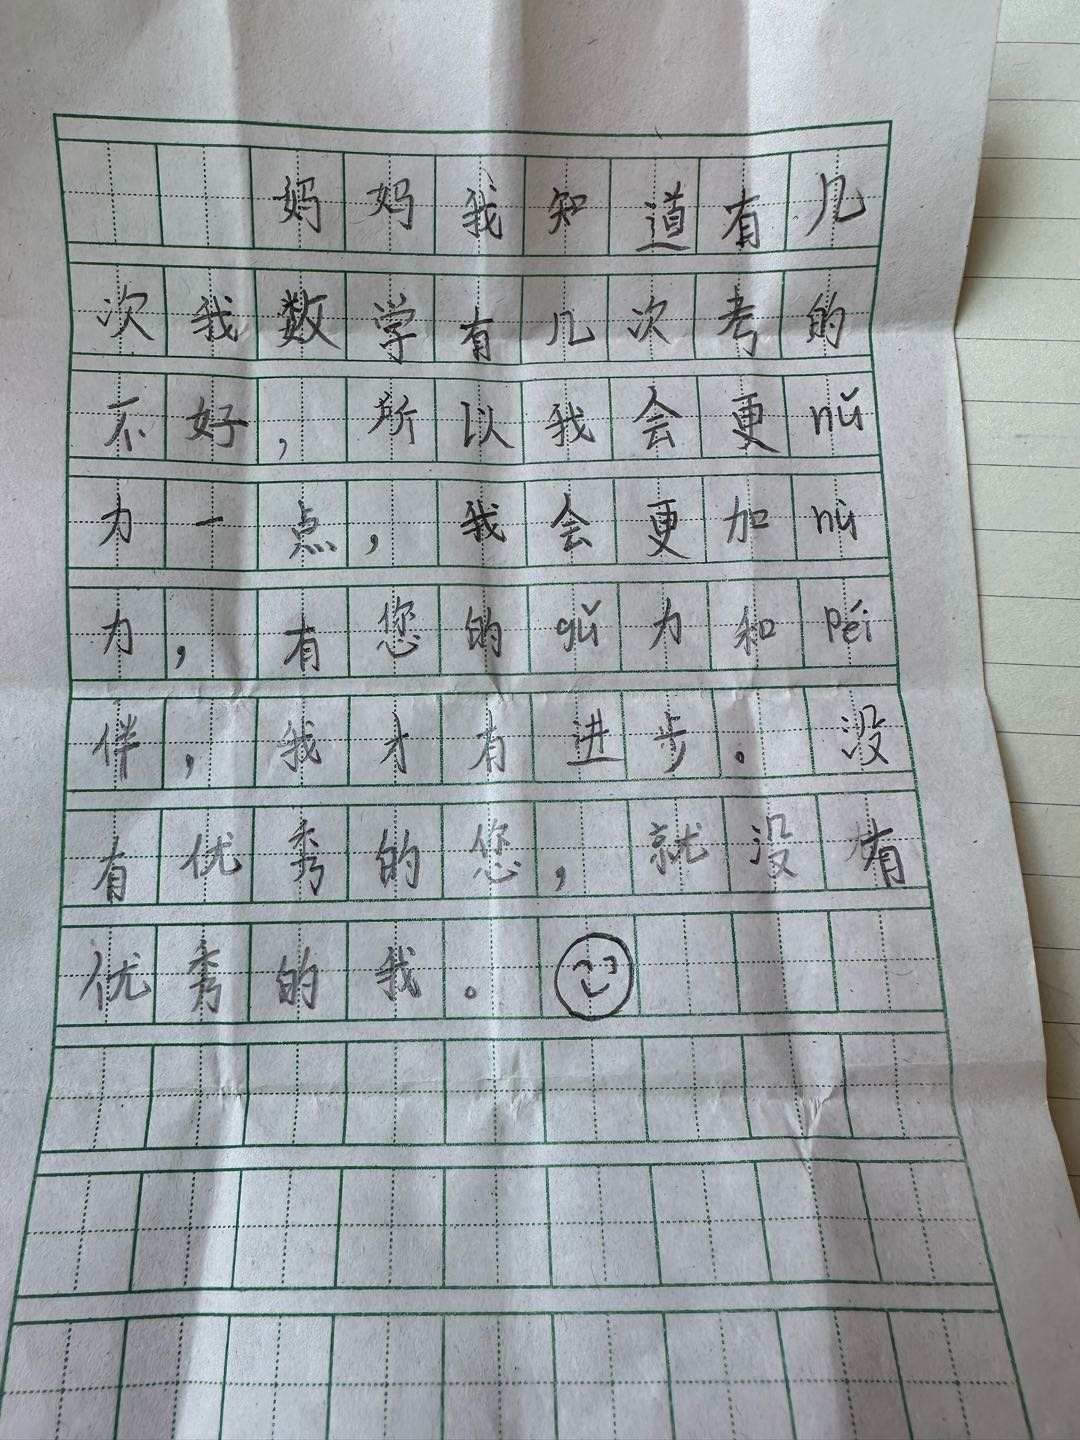 妈妈我知道有几
次我数学有几次考的
不好，所以我会更nǔ
力一点，我会更加nǔ
力，有您的gǔ力和péi
伴，我才有进步。没
有优秀的您，就没有
优秀的我。